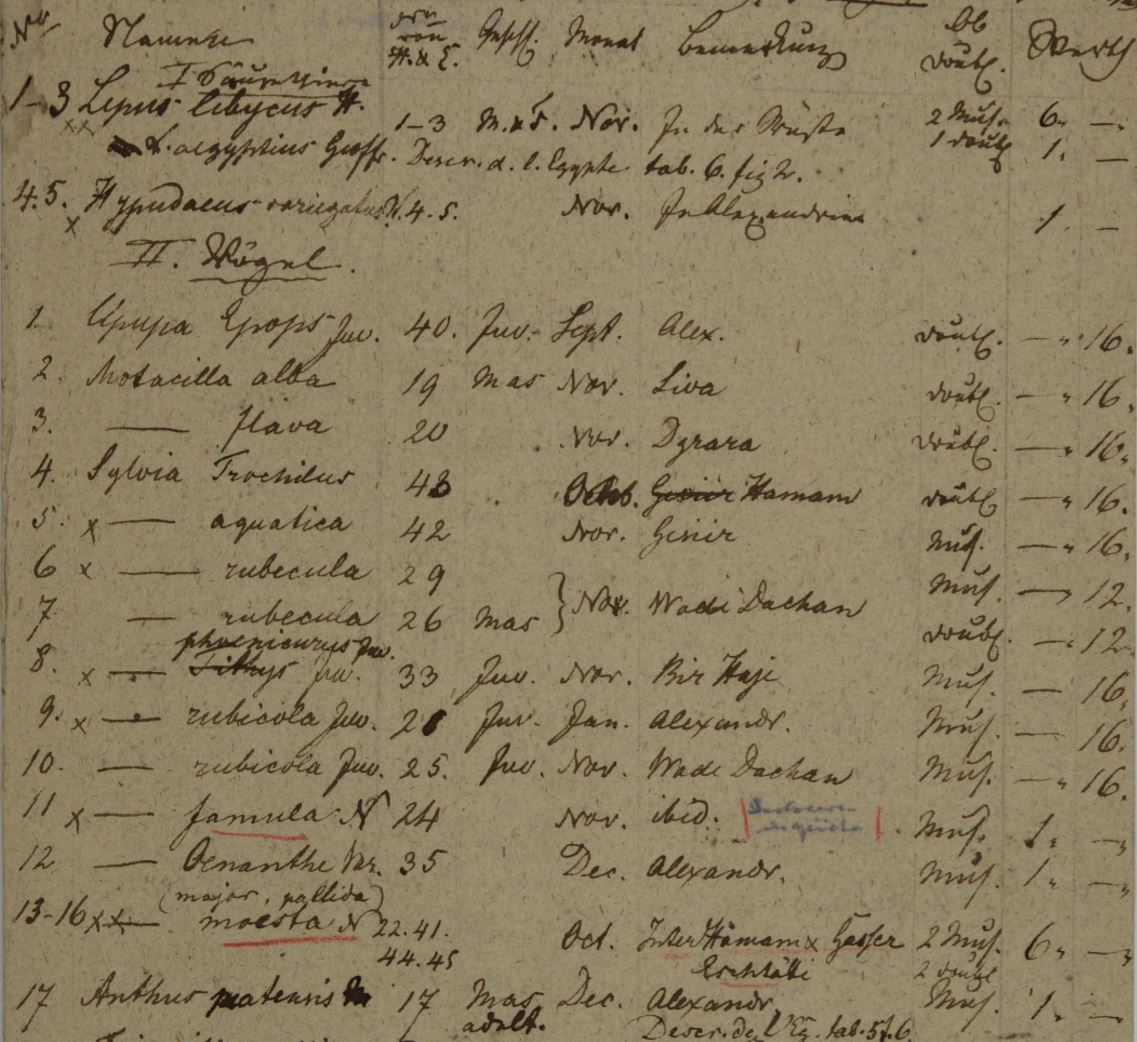 No. Namen von H. & E. Geschl. Monat Bemerkung Ob doubl. Werth
I Säugethiere
1-3 Lepus libycus H. 1-3 M. u. F. Nov. In der Wüste 2 Mus. 6. —
1 doubl.
xx L. aegyptius Geoffr. Descr. d. l. Egypte tab. 6. fig 2. 1. —
4.5. x Hypudaeus variegatus N. 4. 5. Nov. In Alexandrien 1. —
II. Vögel.
1. Upupa Epops Juv. 40. Juv. Sept. Alex. doubl. — " 16.
2. Motacilla alba 19 Mas Nov. Siva doubl. — " 16.
3. — flava 20 Nov. Dgrara doubl. — " 16.
4. Sylvia Trochilus 43 Octb. Gisiir Hamam doubl. — " 16.
5. x — aquatica 42 Nov. Gisiir Mus. — " 16.
6 x — rubecula 29 } Nov. Wadi Dachan Mus. — 12.
7 — rubecula 26 Mas doubl. — 12.
phoenicurus Juv.
8. x — Tithys Juv. 33 Juv. Nov. Bir Haje Mus. — 16.
9. x — rubicola Juv. 28 Juv. Jan. Alexandr. Mus. — 16.
10. — rubicola Juv. 25. Juv. Nov. Wadi Dachan Mus. — " 16.
11 x — famula N 24 Nov. ibid. Mus. 1. — "
12 — Oenanthe Var. 35 Dec. Alexandr. Mus. 1. — "
(major, pallida)
13-16 xx — moesta N 22.41. Oct. Inter Hamam x Gasser 2 Mus. 6. — "
44.45 Eschtabi 2 doubl
17 Anthus pratensis 17 Mas Dec. Alexandr. Mus. 1. — "
adult. Descr. de l'Eg. tab. 5 f. 6.